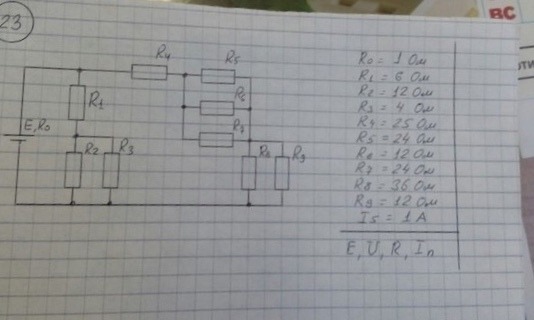 23
R4
R5
R1
R6
R7
E, R0
R2
R3
R8
R9
R0 = 1 Ом
R1 = 6 Ом
R2 = 12 Ом
R3 = 4 Ом
R4 = 25 Ом
R5 = 24 Ом
R6 = 12 Ом
R7 = 24 Ом
R8 = 36 Ом
R9 = 12 Ом
I5 = 1 А
E, U, R, In
ВС